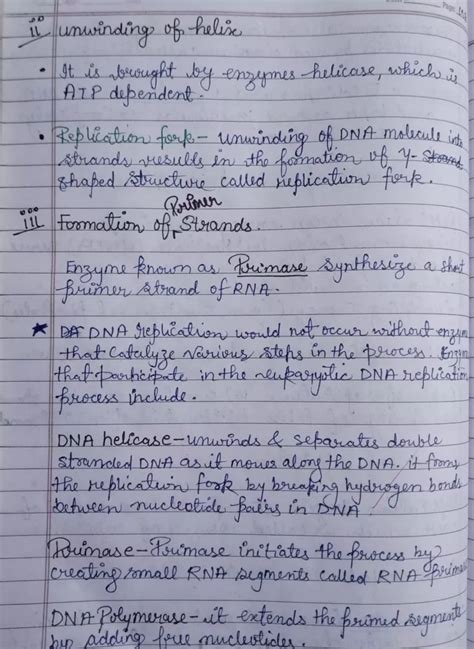 ii unwinding of helix
• It is brought by enzymes helicase, which is
ATP dependent.
• Replication fork - unwinding of DNA molecule into
strands results in the formation of Y-
shaped structure called replication fork.
iii Formation of Primer Strands.
Enzyme known as Primase synthesize a short
primer strand of RNA.
* DNA replication would not occur without enzym
that catalyze various steps in the process. Enzym
that participate in the eukaryotic DNA replication
process include.
DNA helicase - unwinds & separates double
stranded DNA as it moves along the DNA. it forms
the replication fork by breaking hydrogen bonds
between nucleotide pairs in DNA
Primase - Primase initiates the process by
creating small RNA segments called RNA prime
DNA Polymerase - it extends the primed segments
by adding free nucleotides.